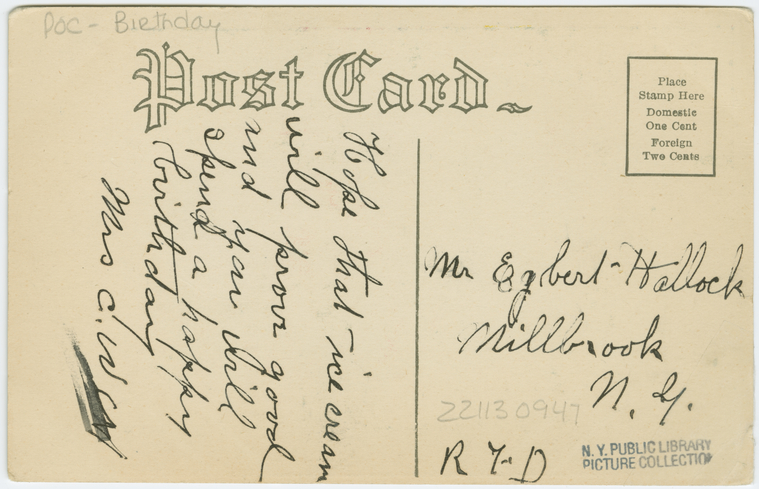 POC - Birthday
Post Card
Place
Stamp Here
Domestic
One Cent
Foreign
Two Cents
Hope that ice cream
will prove good
and you will
spend a happy
birthday
Mrs C.
Mr Egbert Hallock
Millbrook
N. Y.
R F D
221130947
N.Y. PUBLIC LIBRARY
PICTURE COLLECTION